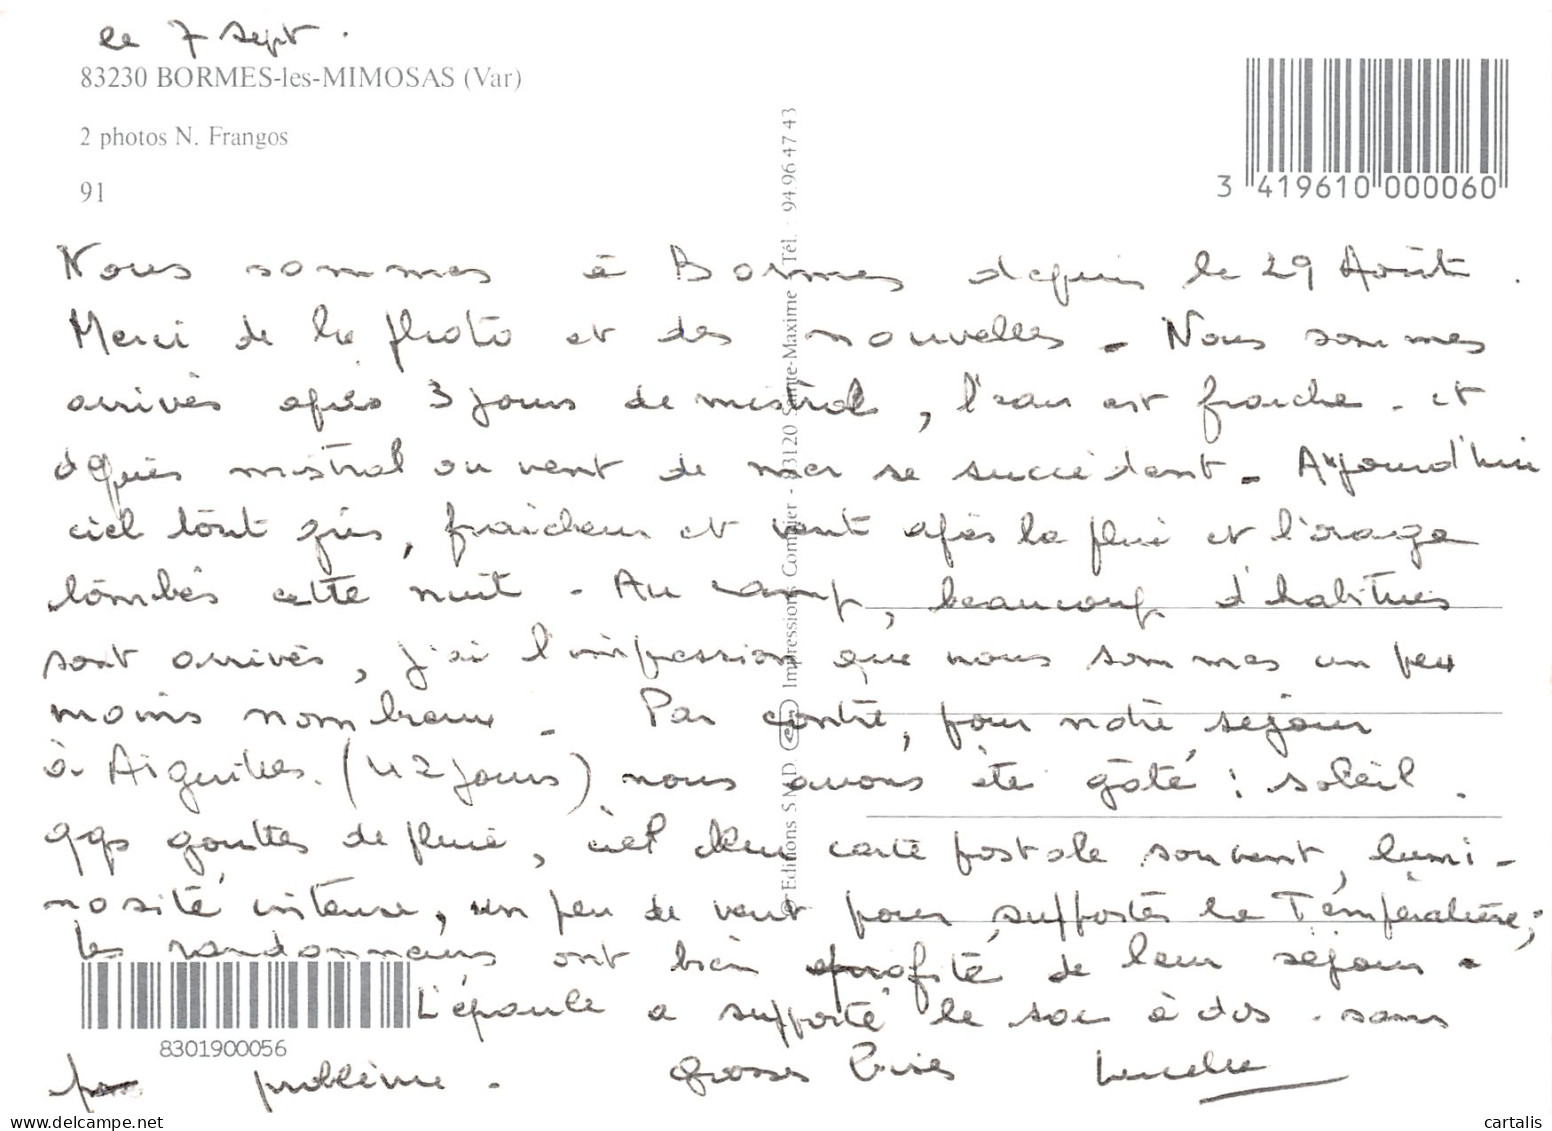 le 7 Sept.
83230 BORMES-les-MIMOSAS (Var)
2 photos N. Frangos
91
3 419610 000060
Nous sommes à Bormes depuis le 29 Août.
Merci de la photo et des nouvelles - Nous sommes
arrivés après 3 jours de mistral, l'eau est fraîche - et
depuis mistral ou vent de mer se succèdent - Aujourd'hui
ciel tout gris, fraîcheur et vent après la pluie et l'orage
tombés cette nuit - Au camp, beaucoup d'habitués
sont arrivés, j'ai l'impression que nous sommes un peu
moins nombreux - Par contre, pour notre séjour
à Aiguilles (42 jours) nous avons été gâté : soleil.
qqs gouttes de pluie, ciel bleu carte postale souvent, lumi-
nosité intense, un peu de vent pour supporter la Température;
les randonneurs ont bien profité de leur séjour -
L'épaule a supporté le sac à dos - sans
problème - Grosses Bises
© Editions S.M.D. Impressions Combier - 83120 Sainte-Maxime Tél. : 94 96 47 43
8301900056
cartalis
delcampe.net